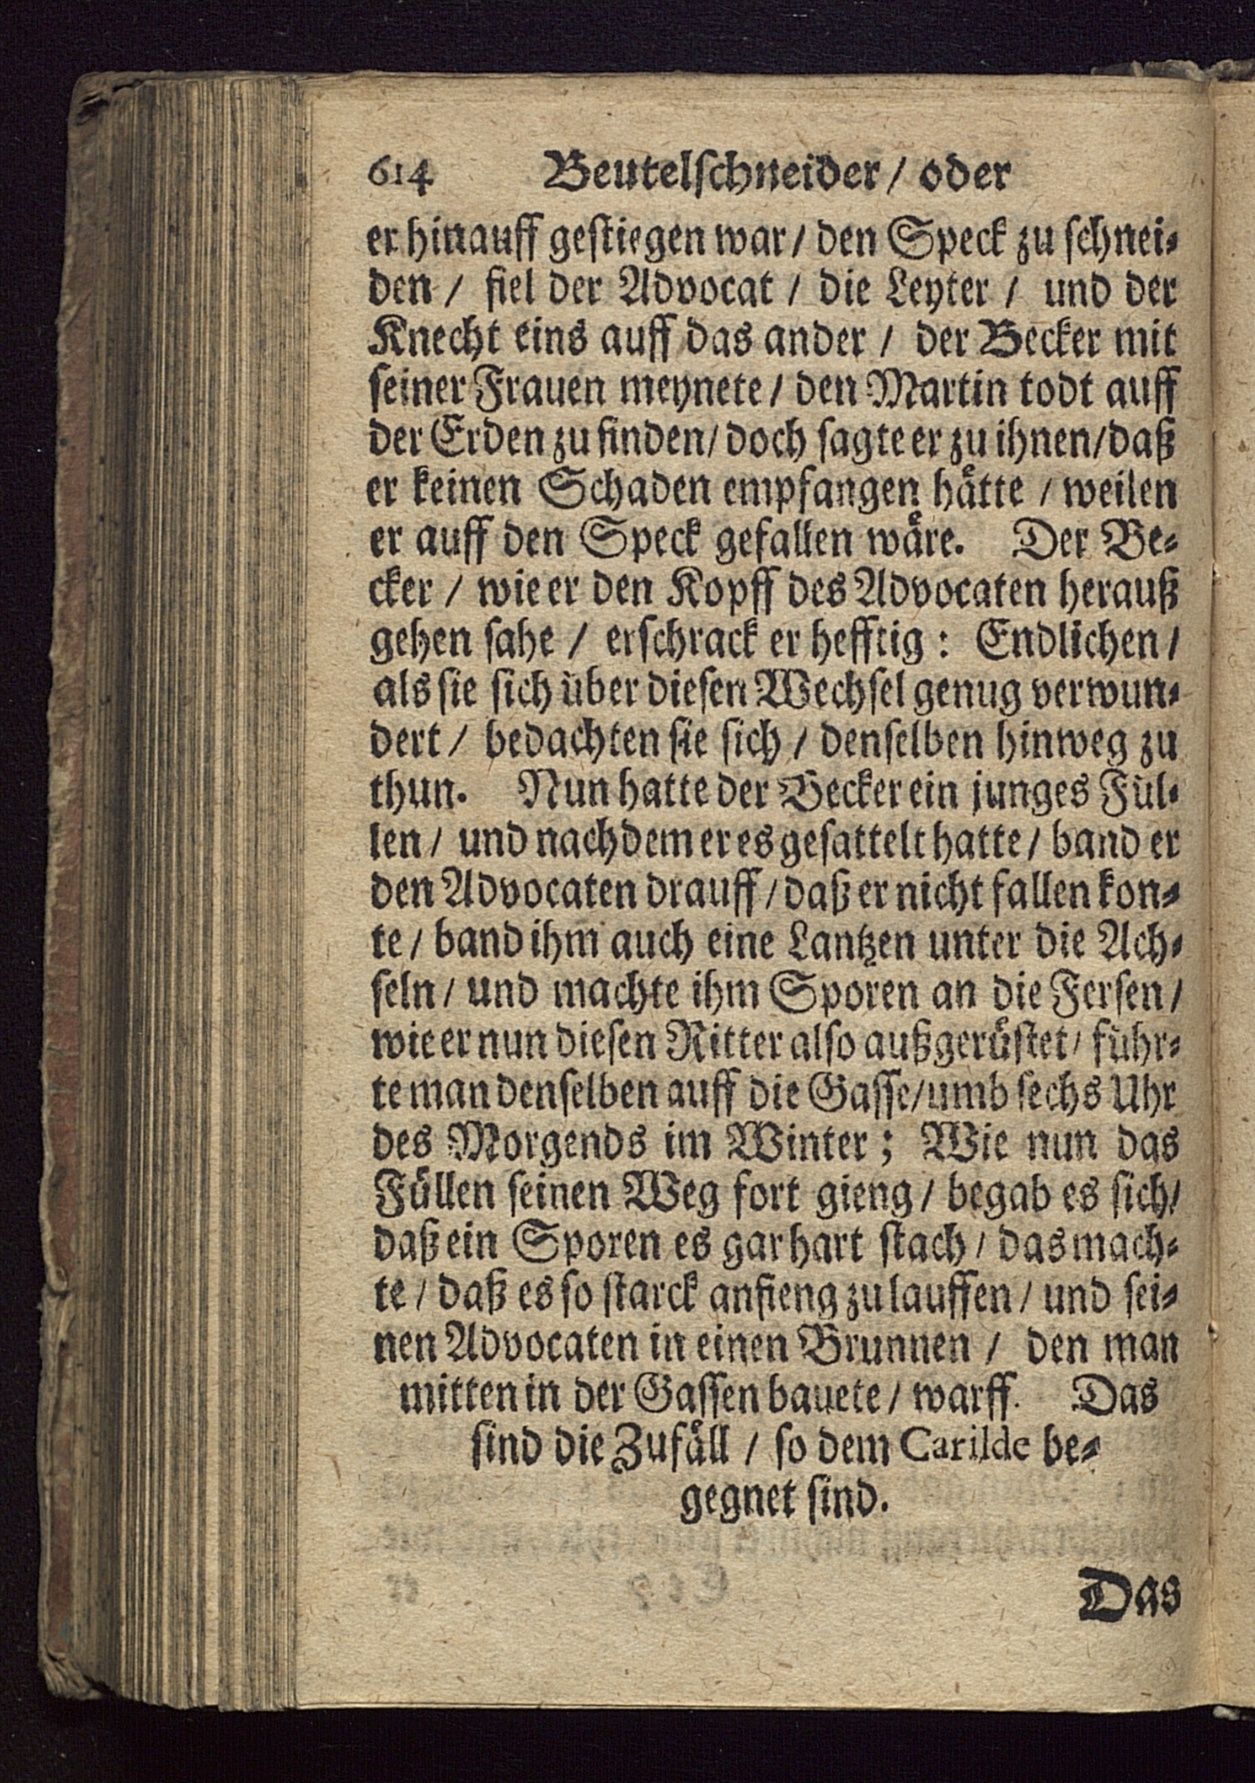 614 Beutelschneider / oder
er hinauff gestiegen war / den Speck zu schnei-
den / fiel der Advocat / die Leyter / und der
Knecht eins auff das ander / der Becker mit
seiner Frauen meynete / den Martin todt auff
der Erden zu finden / doch sagte er zu ihnen / daß
er keinen Schaden empfangen hätte / weilen
er auff den Speck gefallen wäre. Der Be-
cker / wie er den Kopff des Advocaten herauß
gehen sahe / erschrack er hefftig : Endlichen /
als sie sich über diesen Wechsel genug verwun-
dert / bedachten sie sich / denselben hinweg zu
thun. Nun hatte der Becker ein junges Fül-
len / und nachdem er es gesattelt hatte / band er
den Advocaten drauff / daß er nicht fallen kon-
te / band ihm auch eine Lantzen unter die Ach-
seln / und machte ihm Sporen an die Fersen /
wie er nun diesen Ritter also außgerüstet / führ-
te man denselben auff die Gasse / umb sechs Uhr
des Morgends im Winter ; Wie nun das
Füllen seinen Weg fort gieng / begab es sich /
daß ein Sporen es gar hart stach / das mach-
te / daß es so starck anfieng zu lauffen / und sei-
nen Advocaten in einen Brunnen / den man
mitten in der Gassen bauete / warff. Das
sind die Zufäll / so dem Carilde be-
gegnet sind.
Das